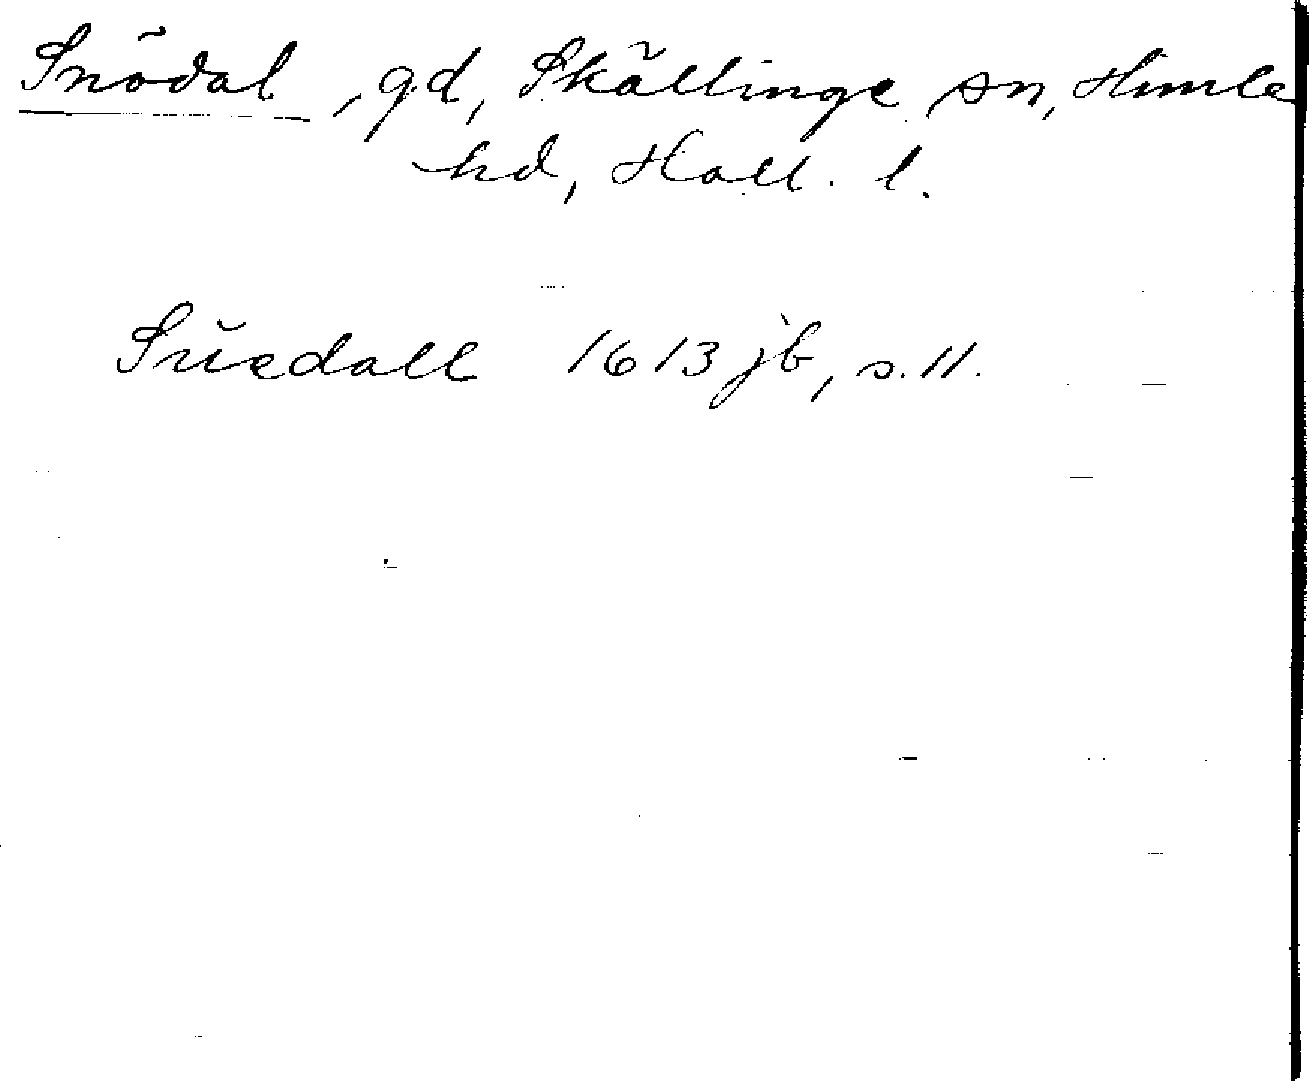 Snödal, gd, Skällinge sn, Himle
hd, Hall. l.
Suedall 1613 jb, s. 11.